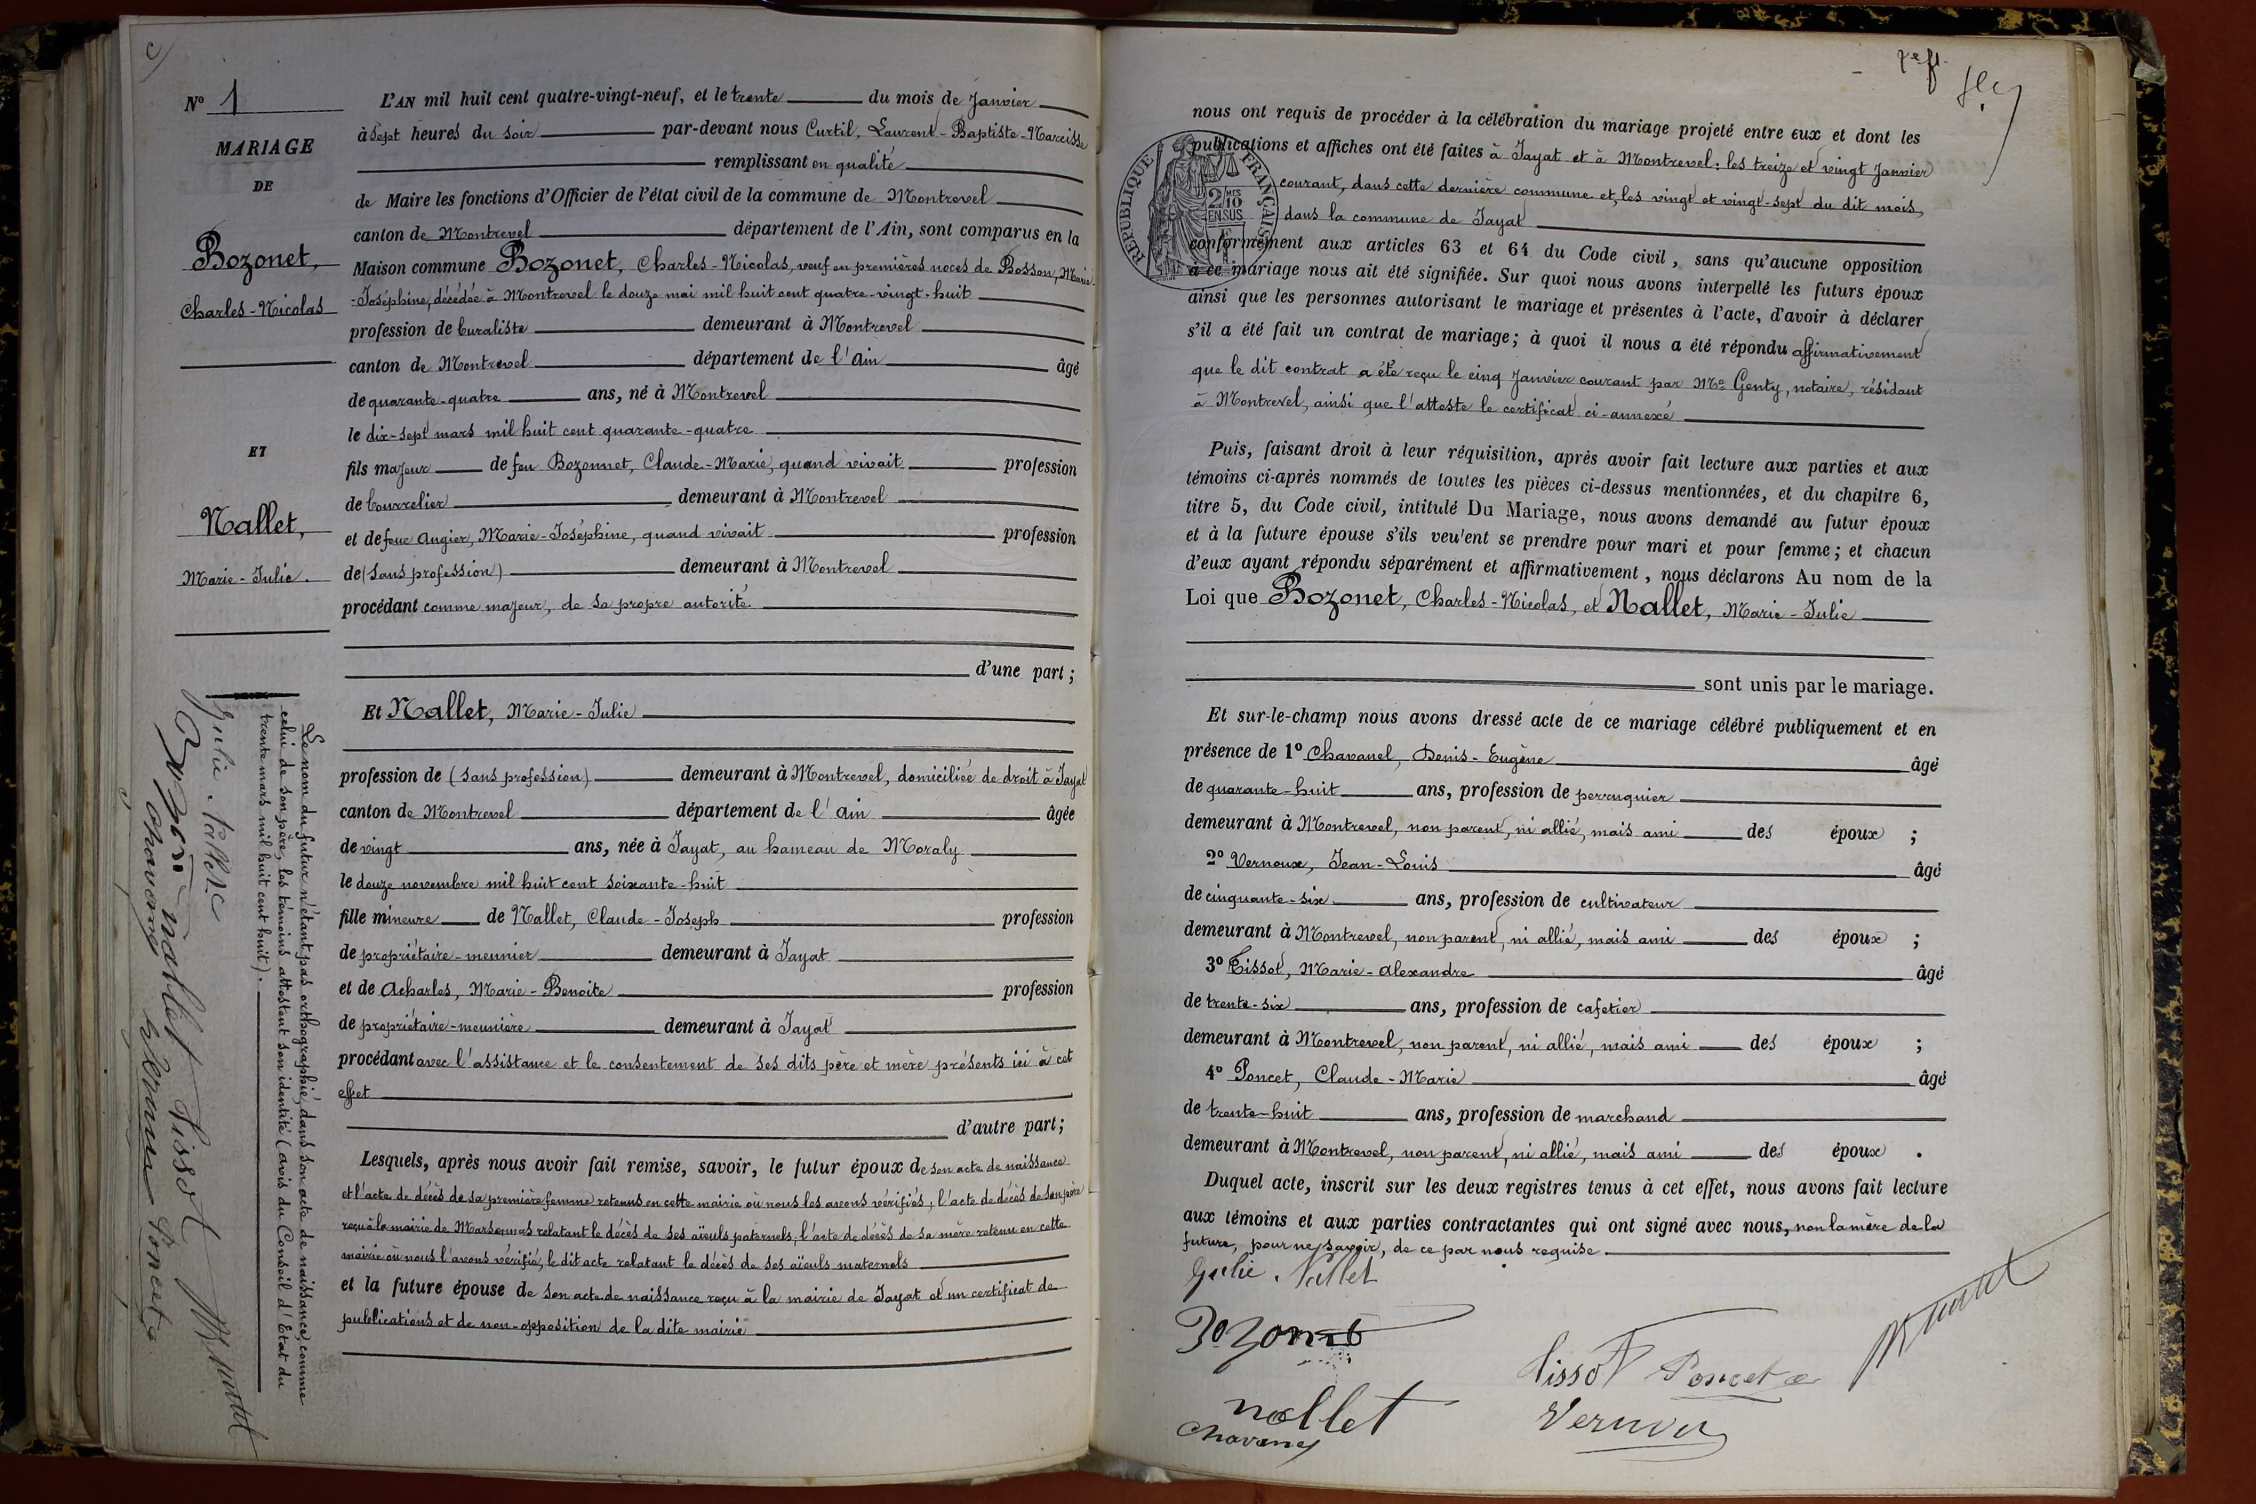 N° 1
MARIAGE
DE
Bozonet,
Charles-Nicolas
ET
Nallet,
Marie-Julie.
Le nom du futur n'étant pas orthographié, dans son acte de naissance, comme
celui de son père, les témoins attestent son identité (avis du Conseil d'État du
trente mars mil huit cent huit).
Julie Nallet
Bozonet nallet Tissot
chavanel Vernoux Poncet
L'AN mil huit cent quatre-vingt-neuf, et le trente du mois de Janvier
à sept heures du soir par-devant nous Curtil, Laurent-Baptiste-Narcisse
remplissant en qualité
de Maire les fonctions d'Officier de l'état civil de la commune de Montrevel
canton de Montrevel département de l'Ain, sont comparus en la
Maison commune Bozonet, Charles-Nicolas, veuf en premières noces de Bosson, Marie-
-Joséphine, décédée à Montrevel le douze mai mil huit cent quatre-vingt-huit
profession de buraliste demeurant à Montrevel
canton de Montrevel département de l'Ain âgé
de quarante-quatre ans, né à Montrevel
le dix-sept mars mil huit cent quarante-quatre
fils majeur de feu Bozonnet, Claude-Marie, quand vivait profession
de bourrelier demeurant à Montrevel
et de feue Augier, Marie-Joséphine, quand vivait profession
de (sans profession) demeurant à Montrevel
procédant comme majeur, de sa propre autorité
d'une part;
Et Nallet, Marie-Julie
profession de (sans profession) demeurant à Montrevel, domiciliée de droit à Jayat
canton de Montrevel département de l'Ain âgée
de vingt ans, née à Jayat, au hameau de Moraly
le douze novembre mil huit cent soixante-huit
fille mineure de Nallet, Claude-Joseph profession
de propriétaire-meunier demeurant à Jayat
et de Acharles, Marie-Benoite profession
de propriétaire-meunière demeurant à Jayat
procédant avec l'assistance et le consentement de ses dits père et mère présents ici à cet
effet
d'autre part;
Lesquels, après nous avoir fait remise, savoir, le futur époux de son acte de naissance
et l'acte de décès de sa première femme retenus en cette mairie où nous les avons vérifiés; l'acte de décès de son père
reçu à la mairie de Marsonnas relatant le décès de ses aïeuls paternels; l'acte de décès de sa mère retenu en cette
mairie où nous l'avons vérifié, le dit acte relatant le décès de ses aïeuls maternels
et la future épouse de son acte de naissance reçu à la mairie de Jayat et un certificat de
publications et de non-opposition de la dite mairie
nous ont requis de procéder à la célébration du mariage projeté entre eux et dont les
publications et affiches ont été faites à Jayat et à Montrevel: les treize et vingt Janvier
courant, dans cette dernière commune et, les vingt et vingt-sept du dit mois,
dans la commune de Jayat
RÉPUBLIQUE FRANÇAISE
2 MES
10
EN SUS
conformément aux articles 63 et 64 du Code civil, sans qu'aucune opposition
à ce mariage nous ait été signifiée. Sur quoi nous avons interpellé les futurs époux
ainsi que les personnes autorisant le mariage et présentes à l'acte, d'avoir à déclarer
s'il a été fait un contrat de mariage; à quoi il nous a été répondu affirmativement
que le dit contrat a été reçu le cinq Janvier courant par Me Genty, notaire, résidant
à Montrevel, ainsi que l'atteste le certificat ci-annexé
Puis, faisant droit à leur réquisition, après avoir fait lecture aux parties et aux
témoins ci-après nommés de toutes les pièces ci-dessus mentionnées, et du chapitre 6,
titre 5, du Code civil, intitulé Du Mariage, nous avons demandé au futur époux
et à la future épouse s'ils veu'ent se prendre pour mari et pour femme; et chacun
d'eux ayant répondu séparément et affirmativement, nous déclarons Au nom de la
Loi que Bozonet, Charles-Nicolas, et Nallet, Marie-Julie
sont unis par le mariage.
Et sur-le-champ nous avons dressé acte de ce mariage célébré publiquement et en
présence de 1° Chavanel, Denis-Eugène âgé
de quarante-huit ans, profession de perruquier
demeurant à Montrevel, non parent, ni allié, mais ami des époux;
2° Vernoux, Jean-Louis âgé
de cinquante-six ans, profession de cultivateur
demeurant à Montrevel, non parent, ni allié, mais ami des époux;
3° Tissot, Marie-Alexandre âgé
de trente-six ans, profession de cafetier
demeurant à Montrevel, non parent, ni allié, mais ami des époux;
4° Poncet, Claude-Marie âgé
de trente-huit ans, profession de marchand
demeurant à Montrevel, non parent, ni allié, mais ami des époux.
Duquel acte, inscrit sur les deux registres tenus à cet effet, nous avons fait lecture
aux témoins et aux parties contractantes qui ont signé avec nous, non la mère de la
future, pour ne savoir, de ce par nous requise
Julie Nallet
Bozonet
Tissot Poncet
nallet
Vernoux
chavanel